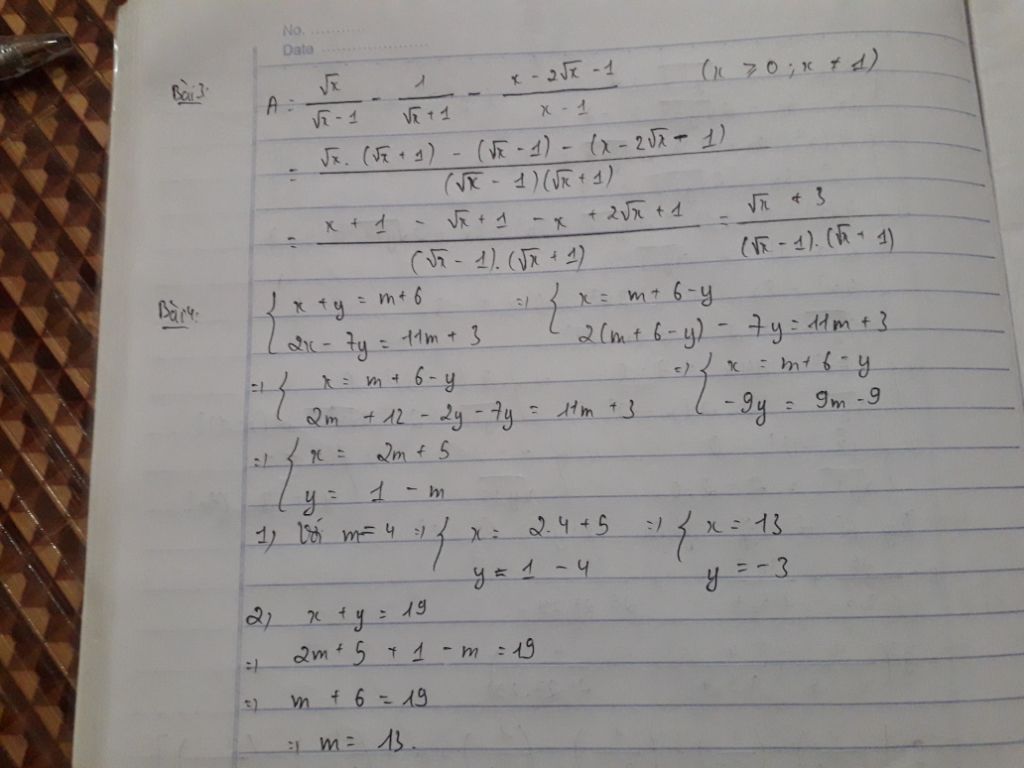 No. ............
Date ........................
Bài 3: A = √x/(√x - 1) - 1/(√x + 1) - (x - 2√x - 1)/(x - 1) (x ≥ 0 ; x ≠ 1)
= (√x. (√x + 1) - (√x - 1) - (x - 2√x - 1))/((√x - 1)(√x + 1))
= (x + 1 - √x + 1 - x + 2√x + 1)/((√x - 1).(√x + 1)) = (√x + 3)/((√x - 1).(√x + 1))
Bài 4: { x + y = m + 6 => { x = m + 6 - y
2x - 7y = 11m + 3 2(m + 6 - y) - 7y = 11m + 3
=> { x = m + 6 - y => { x = m + 6 - y
2m + 12 - 2y - 7y = 11m + 3 -9y = 9m - 9
=> { x = 2m + 5
y = 1 - m
1) Với m = 4 => { x = 2.4 + 5 => { x = 13
y = 1 - 4 y = -3
2) x + y = 19
=> 2m + 5 + 1 - m = 19
=> m + 6 = 19
=> m = 13.